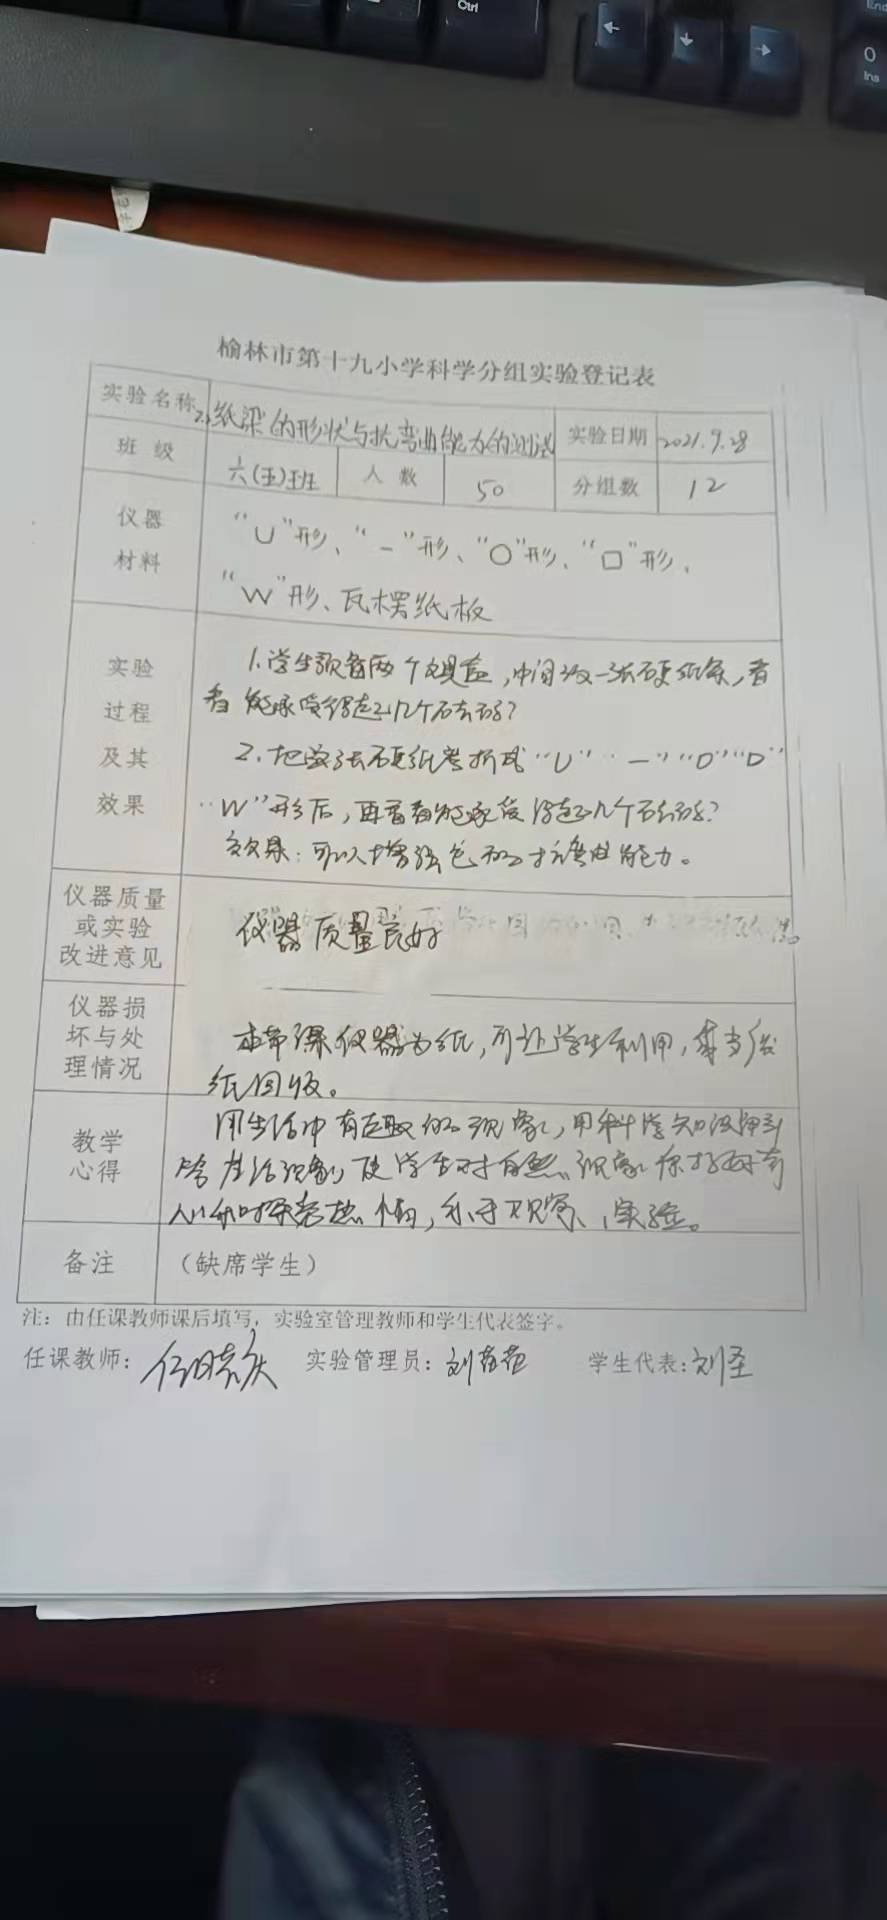 Ctrl
End
0
Ins
榆林市第十九小学科学分组实验登记表
实验名称 2、纸梁的形状与抗弯曲能力的测试 实验日期 2021.9.28
班 级 六(五)班 人 数 50 分组数 12
仪器
材料
“U”形、“-”形、“O”形、“口”形、
“W”形、瓦楞纸板
实验
过程
及其
效果
1.学生预备两个文具盒,中间放一张硬纸条,看
看能承受得起几个砝码?
2.把这张硬纸卷折成“U”“一”“O”“口”
“W”形后,再看看能承受得起几个砝码?
效果:可以增强它的抗弯曲能力。
仪器质量
或实验
改进意见
仪器质量良好
仪器损
坏与处
理情况
本节课仪器为纸,可让学生利用,或当
纸回收。
教学
心得
用生活中有趣的现象,用科学知识
生活现象,使学生对自然现象保持好奇
心和探究热情,乐于观察、实验。
备注 (缺席学生)
注:由任课教师课后填写,实验室管理教师和学生代表签字。
任课教师: 实验管理员:刘 学生代表:刘圣